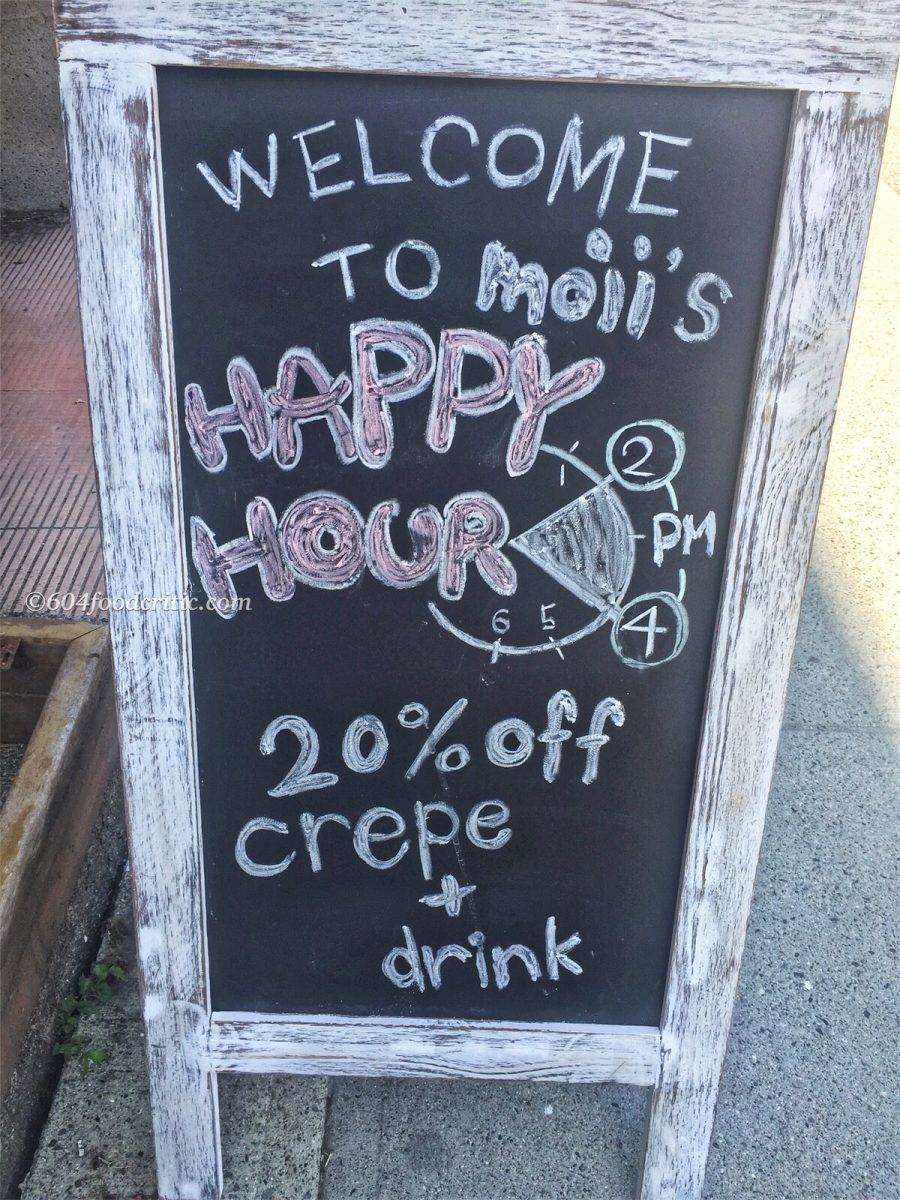 WELCOME
TO moii's
HAPPY
HOUR
1 2
PM
6 5 4
20% off
crepe
+
drink
©604foodcritic.com